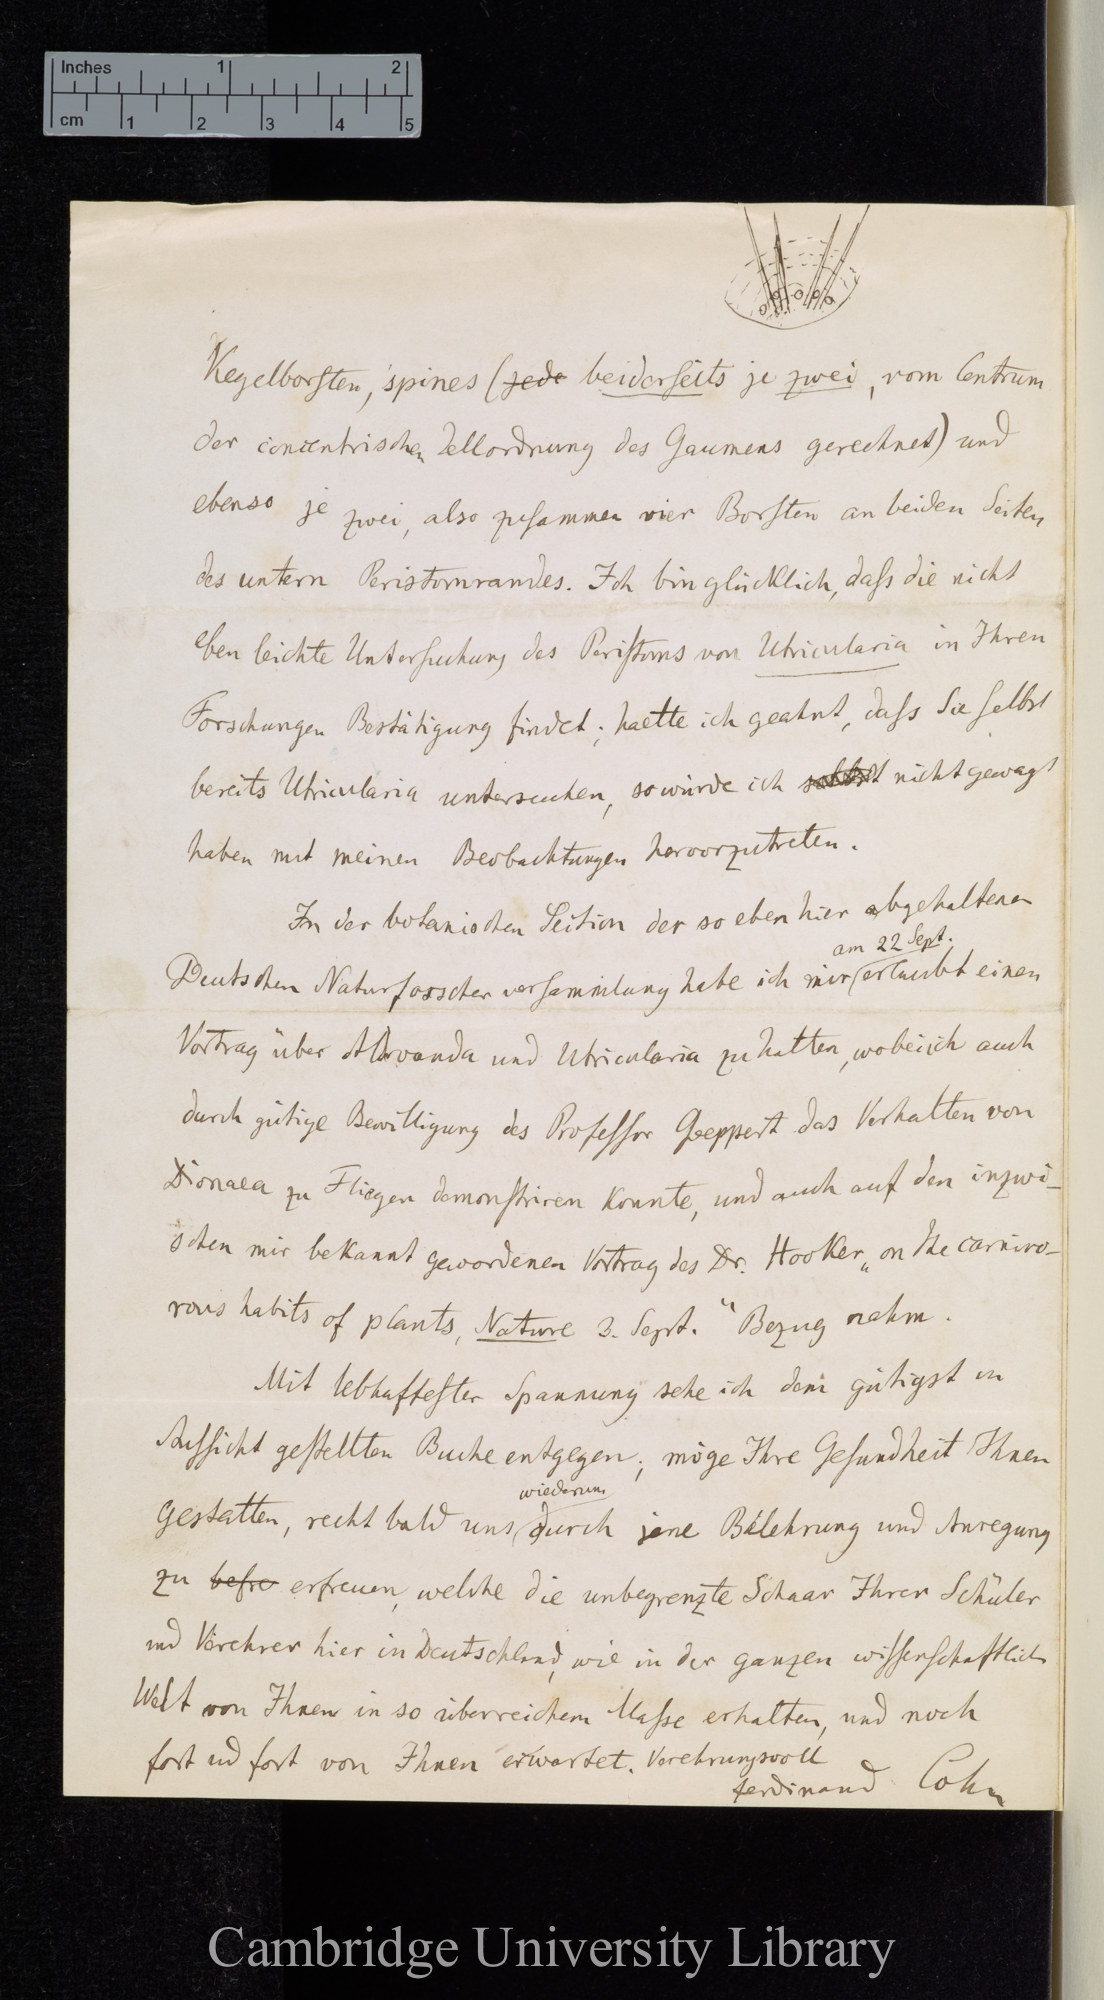 Inches 1 2
cm 1 2 3 4 5
Kegelborsten, spines (jede beiderseits je zwei, vom Centrum
der concentrischen Zellordnung des Gaumens gerechnet) und
ebenso je zwei, also zusammen vier Borsten an beiden Seiten
des untern Peristomrandes. Ich bin glücklich, dass die nicht
eben leichte Untersuchung des Peristoms von Utricularia in Ihren
Forschungen Bestätigung findet; haette ich geahnt, dass Sie selbst
bereits Utricularia untersuchen, so würde ich selbst nicht gewagt
haben mit meinen Beobachtungen hervorzutreten.
In der botanischen Section der so eben hier abgehaltenen
am 22 Sept.
Deutschen Naturforscherversammlung habe ich mir erlaubt einen
Vortrag über Aldrovanda und Utricularia zu halten, wobei ich auch
durch gütige Bewilligung des Professor Goeppert das Verhalten von
Dionaea zu Fliegen demonstriren konnte, und auch auf den inzwi-
schen mir bekannt gewordenen Vortrag des Dr. Hooker „on the carnivo-
rous habits of plants, Nature 3. Sept.“ Bezug nahm.
Mit lebhaftester Spannung sehe ich dem gütigst in
Aussicht gestellten Buche entgegen; möge Ihre Gesundheit Ihnen
wiederum
gestatten, recht bald uns durch jene Belehrung und Anregung
zu befre erfreuen, welche die unbegrenzte Schaar Ihrer Schüler
und Verehrer hier in Deutschland, wie in der ganzen wissenschaftlich
Welt von Ihnen in so überreichem Masse erhalten, und noch
fort ud fort von Ihnen erwartet. Verehrungsvoll
Ferdinand Cohn
Cambridge University Library